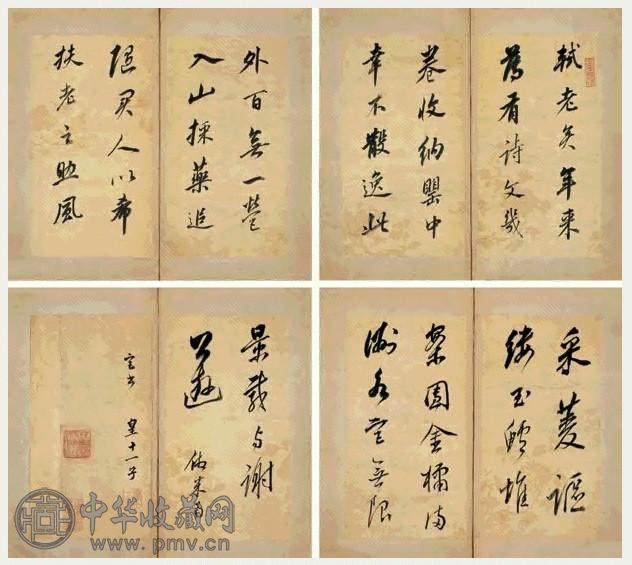 軾老矣年來
舊有詩文幾
卷收納罌中
幸不散逸此
外百無一營
入山採藥追
隨異人以希
扶老之助風
采菱謳
縷玉鱸堆
案團金橘滿
洲水宮無限
景載与謝
公遊 仿米南
宮書 皇十一子
中华收藏网
www.pmv.cn